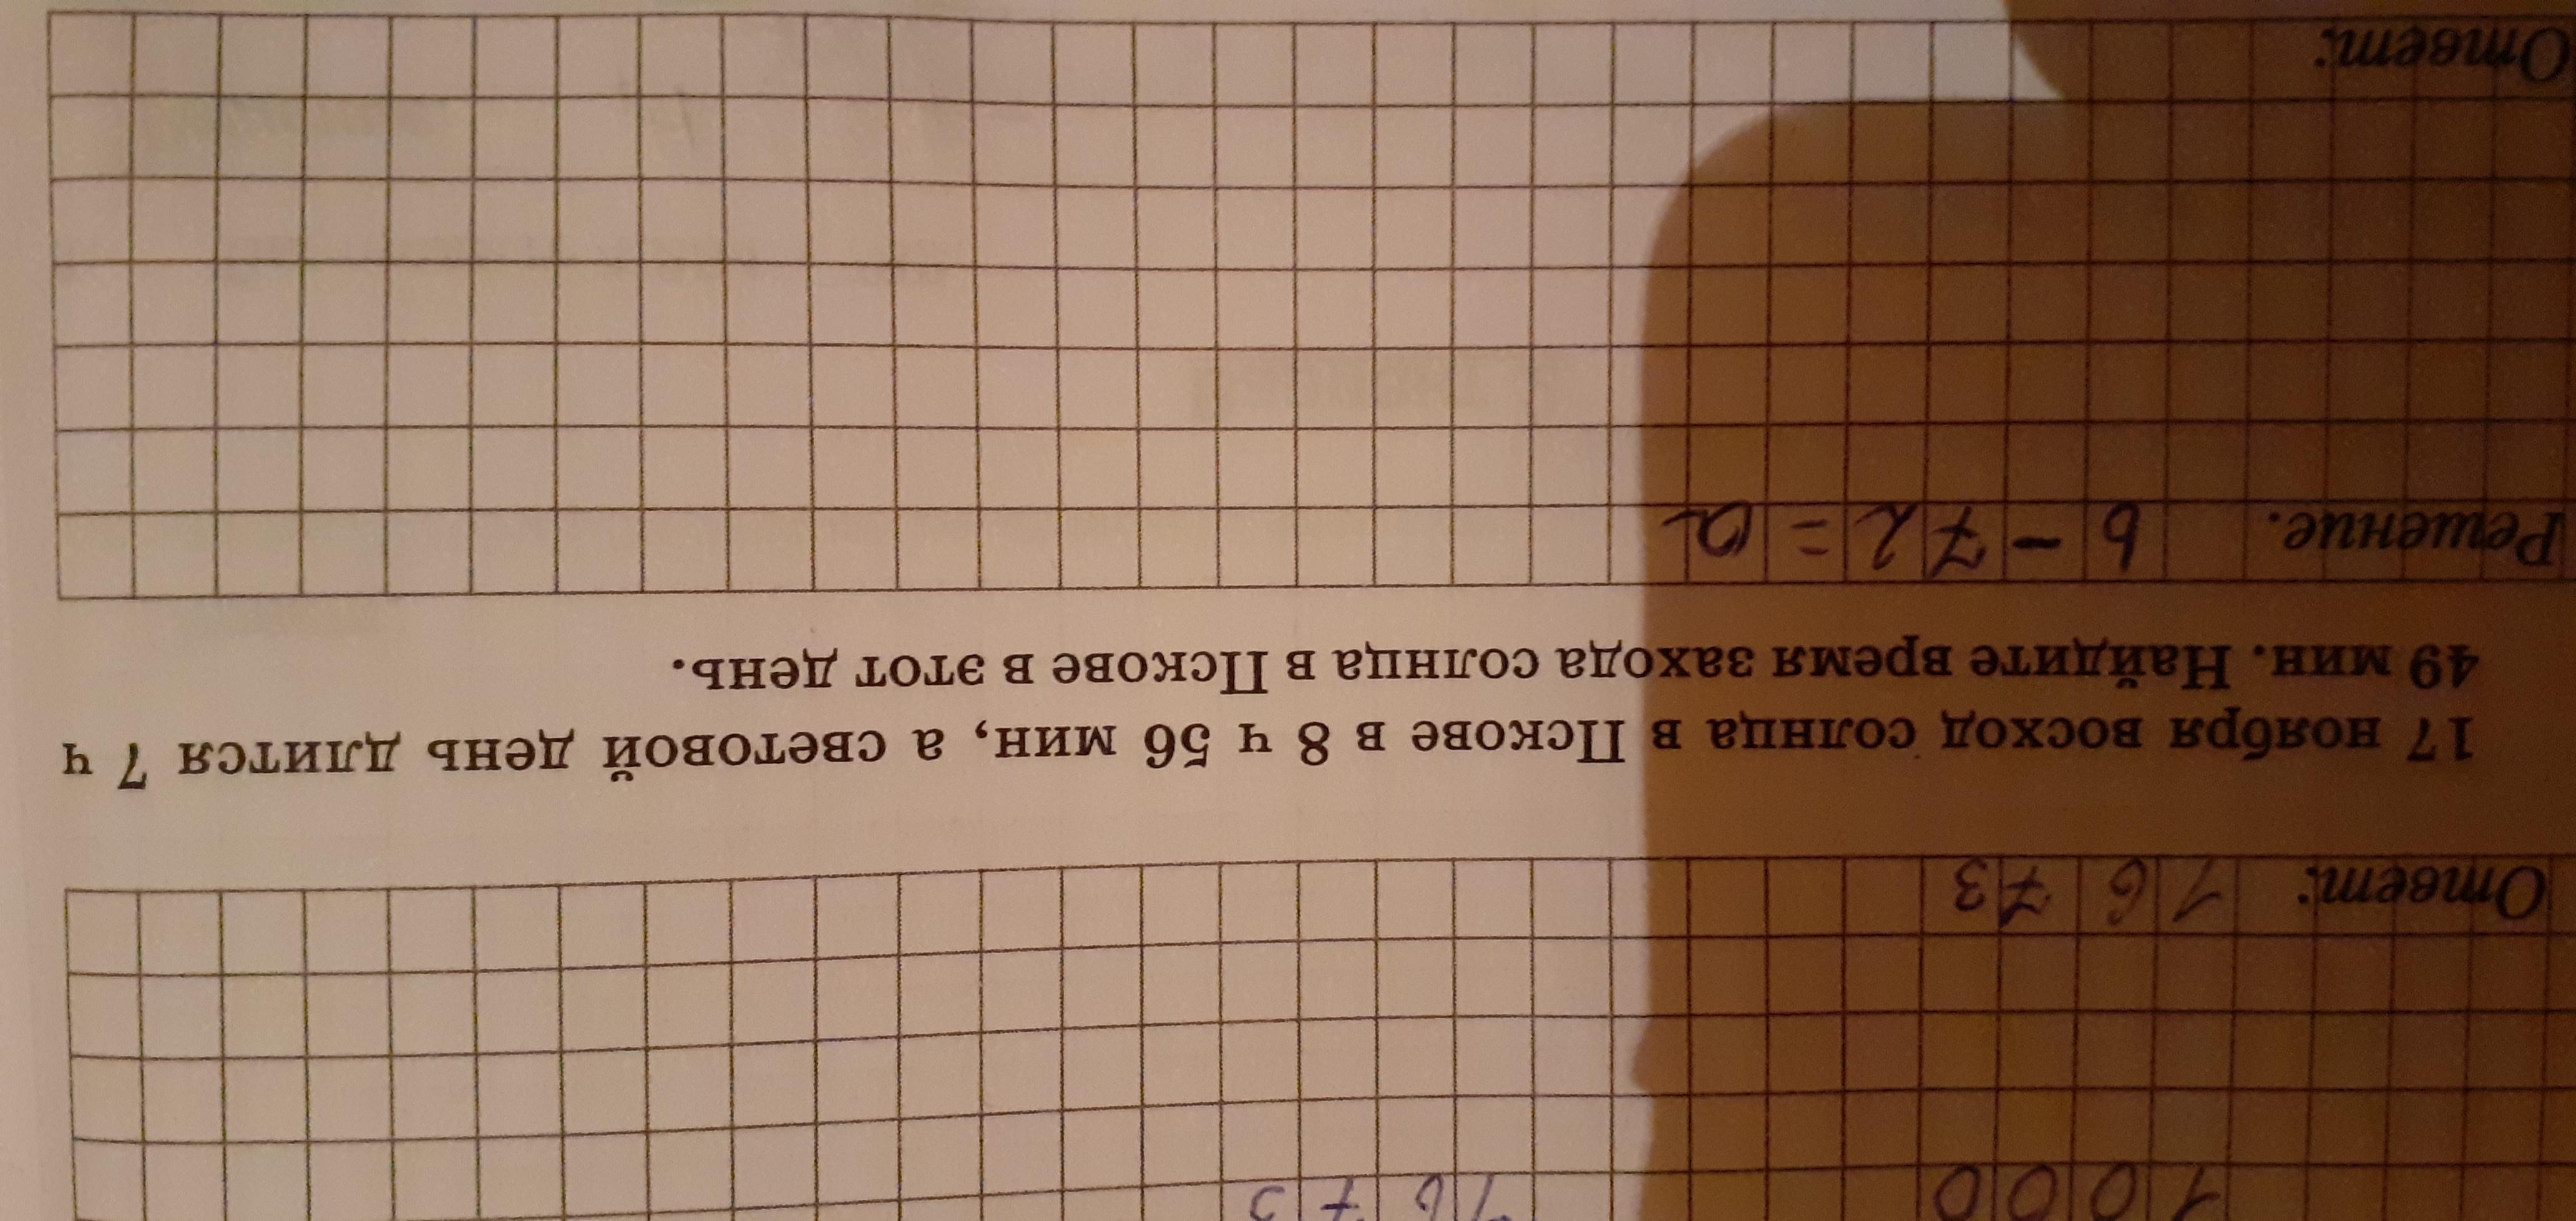 1000 1673
Ответ: 1673
17 ноября восход солнца в Пскове в 8 ч 56 мин, а световой день длится 7 ч
49 мин. Найдите время захода солнца в Пскове в этот день.
Решение. b - 72 = a
Ответ: